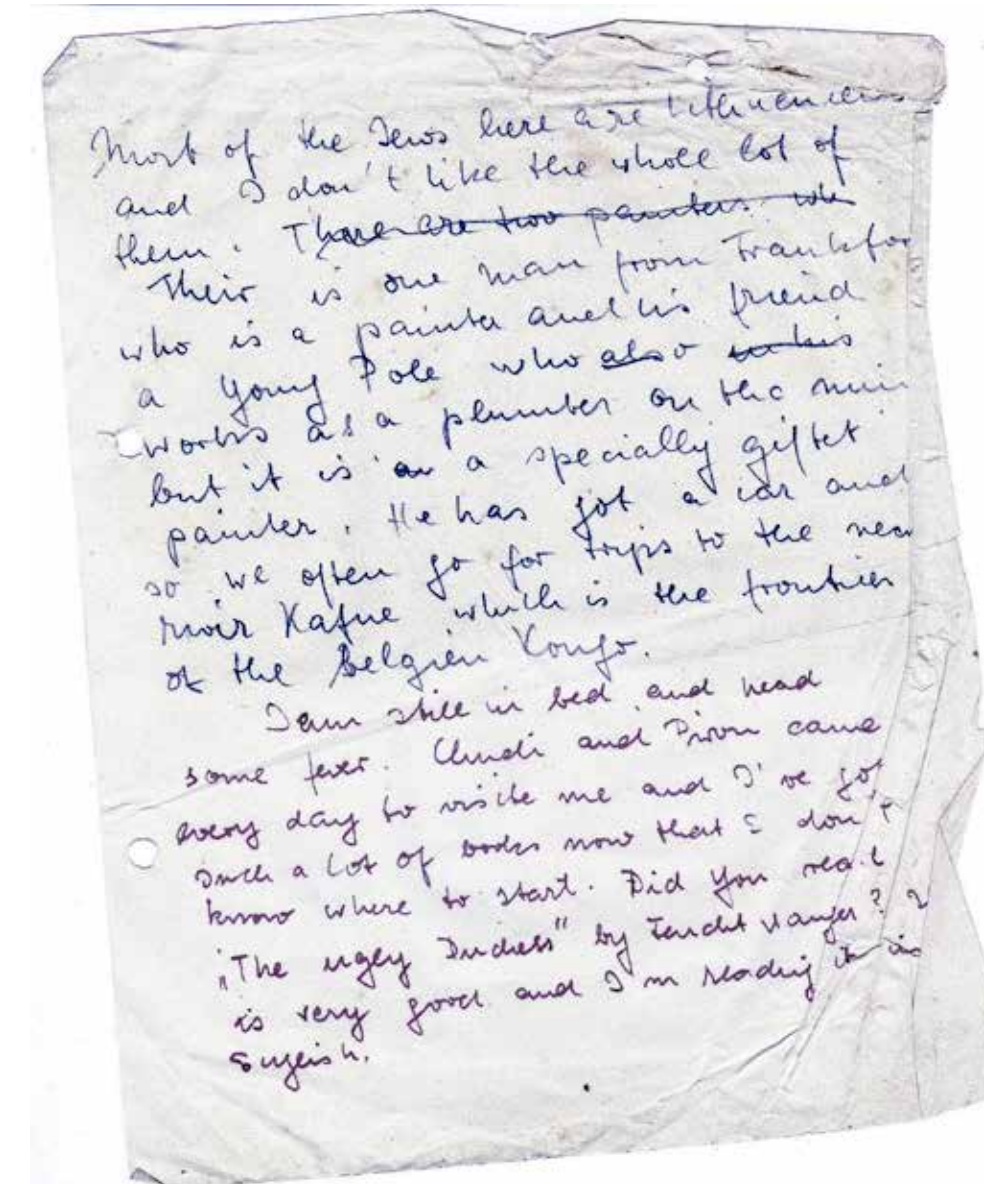 Most of the Jews here are Lithuenciens
and I don't like the whole lot of
them. There are two painters who
Their is one man from Frankfor
who is a painter and his friend
a young Pole who also in his
works as a plumber on the min
but it is an a specially giftet
painter. He has got a car and
so we often go for trips to the near
rivir Kafue which is the frontier
of the Belgien Kongo.
I am still in bed and head
some fever. and came
every day to visite me and I've got
such a lot of books now that I don't
know where to start. Did you read
„The ugly Duchess" by Feucht wanger?
is very good and I'm reading it in
English.